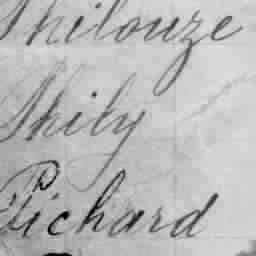 Philouze
Phily
Pichard